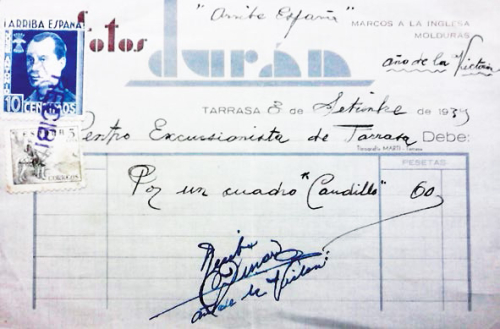 ¡ARRIBA ESPAÑA!
10 CENTIMOS
5
CORREOS
RECIBI
"Arriba España"
MARCOS A LA INGLESA
MOLDURAS
fotos durán
año de la Victoria
TARRASA 8 de Setiembre de 1939
Centro Excursionista de Tarrasa Debe:
PESETAS
Por un cuadro "Caudillo" 60
Recibí
año de la Victoria